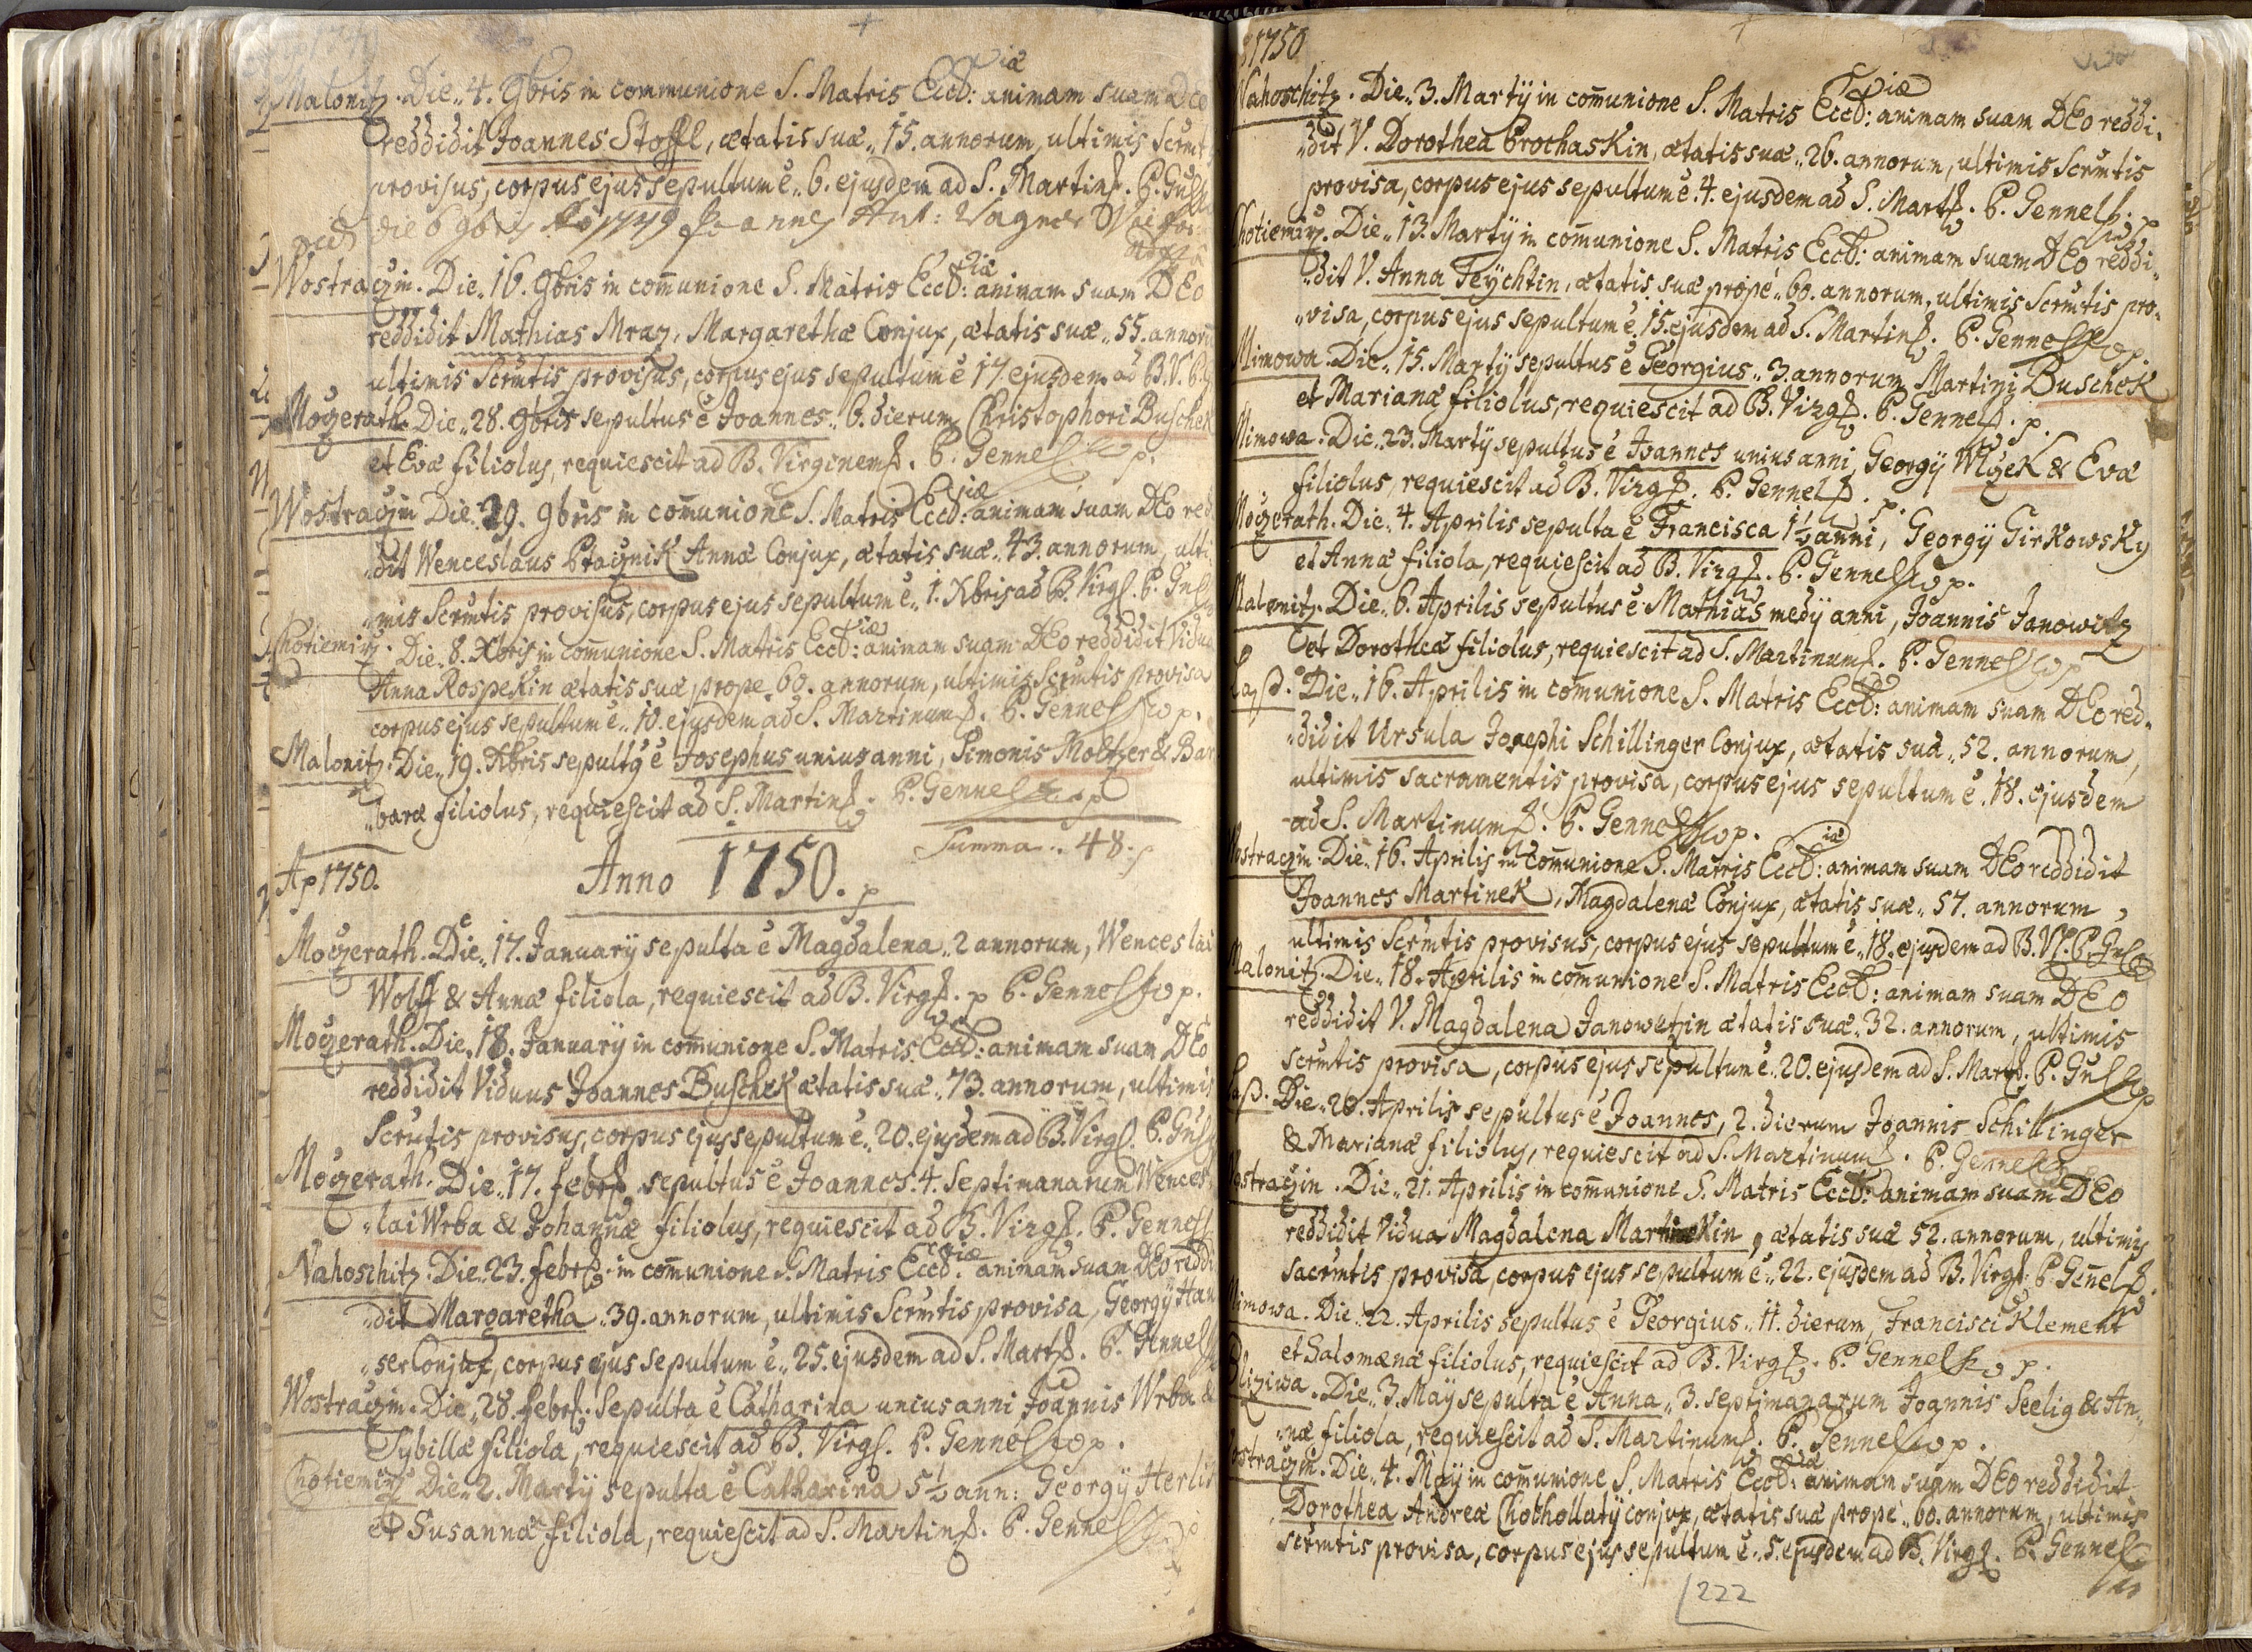 Malonitz. Die„ 4. 9bris in communione S. Matris Eccl:iæ animam suam Deo
reddidit Joannes Stoffl, ætatis suæ„ 15. annorum, ultimis Scrmt
provisus, corpus ejus sepultum ē„ 6. ejusdem ad S. Martin. P.
die 6 9bris 1749 Joannes Ant: Wagner
Wostraczin. Die„ 16. 9bris in com̄unione S. Matris Eccl:iæ animam suam DEo
reddidit Mathias Mraz, Margarethæ Conjux, ætatis suæ„ 55. annorū
ultimis Scrm̄tis provisus, corpus ejus sepultum ē 17. ejusdem ad B.V. P.
Moczerath. Die„ 28. 9bris sepultus ē Joannes„ 6. dierum Christophori Buschek
et Evæ filiolus, requiescit ad B. Virginem. P. Gennel
Wostraczin Die„ 29. 9bris in com̄unione S. Matris Eccl:iæ animam suam DEo red
„dit Wenceslaus Ptacznik Annæ Conjux, ætatis suæ„ 43. annorum, ulti„
„mis Scrm̄tis provisus, corpus ejus sepultum ē„ 1. Xbris ad B. Virg. P.
Chotiemirz. Die„ 8. Xbris in com̄unione S. Matris Eccl:iæ animam suam DEo reddidit Vidua
Anna Rospekin ætatis suæ prope„ 60. annorum, ultimis Scrm̄tis provisa
corpus ejus sepultum ē„ 10. ejusdem ad S. Martinum. P. Gennel p.
Malonitz. Die„ 19. Xbris sepultg ē Josephus unius anni, Simonis Moltzer & Bar
„baræ filiolus, requiescit ad S. Martin. P. Gennel p
Summa„ 48. p
Ap 1750. Anno 1750. p
Moczerath. Die„ 17. Januarÿ sepulta ē Magdalena„ 2 annorum, Wenceslai
Wolff & Annæ filiola, requiescit ad B. Virg. p P. Gennel p.
Moczerath. Die„ 18. Januarÿ in com̄unione S. Matris Eccl: animam suam DEo
reddidit Viduus Joannes Buschek ætatis suæ„ 73. annorum, ultimis
Scrm̄tis provisus, corpus ejus sepultum ē„ 20. ejusdem ad B. Virg. P.
Moczerath. Die„ 17. febr. sepultus ē Joannes„ 4. Septimanarum Wences„
„lai Wrba & Johannæ filiolus, requiescit ad B. Virg. P. Gennel
Nahoschitz. Die„ 23. febr. in com̄unione S. Matris Eccl:iæ animam suam DEo reddi
„dit Margaretha„ 39. annorum, ultimis Scrm̄tis provisa, Georgÿ Hau
„ser Conjux, corpus ejus sepultum ē„ 25. ejusdem ad S. Mart. P. Gennel
Wostraczin. Die„ 28. febr. Sepulta ē Catharina unius anni, Joannis Wrba &
Sybillæ filiola, requiescit ad B. Virg. P. Gennel p.
Chotiemirz Die„ 2. Martÿ sepulta ē Catharina 5½ ann: Georgÿ
et Susannæ filiola, requiescit ad S. Martin. P. Gennel
1750
Nahoschitz. Die„ 3. Martÿ in com̄unione S. Matris Eccl:iæ animam suam DEo reddi„
„dit V. Dorothea Prochaskin, ætatis suæ„ 26. annorum, ultimis Scrm̄tis
provisa, corpus ejus sepultum ē. 4. ejusdem ad S. Mart. P. Gennel p
Chotiemirz. Die„ 13. Martÿ in com̄unione S. Matris Eccl: animam suam DEo reddi„
„dit V. Anna Teÿchtin, ætatis suæ propè„ 60. annorum, ultimis Scrm̄tis pro„
„visa, corpus ejus sepultum ē„ 15. ejusdem ad S. Martin. P. Gennel p.
Mimowa. Die„ 15. Martÿ sepultus ē Georgius„ 3. annorum Martini Buschek
et Marianæ filiolus, requiescit ad B. Virg. P. Gennel. p.
Mimowa. Die„ 23. Martÿ sepultus ē Joannes unius anni, Georgÿ Wlczek & Evæ
filiolus, requiescit ad B. Virg. P. Gennel. p.
Moczerath. Die„ 4. Aprilis sepulta ē Francisca 1½ anni, Georgÿ Girkowsky
et Annæ filiola, requiescit ad B. Virg. P. Gennel p.
Malonitz. Die„ 6. Aprilis sepultus ē Mathias medÿ anni, Joannis Janowitz
et Dorotheæ filiolus, requiescit ad S. Martinum. P. Gennel p
Die„ 16. Aprilis in com̄unione S. Matris Eccl: animam suam DEo red„
„didit Ursula Josephi Schillinger Conjux, ætatis suæ„ 52. annorum,
ultimis sacramentis provisa, corpus ejus sepultum ē„ 18. ejusdem
ad S. Martinum. P. Gennel p.
Wostraczin. Die„ 16. Aprilis in com̄unione S. Matris Eccl:iæ animam suam DEo reddidit
Joannes Martinek, Magdalenæ Conjux, ætatis suæ„ 57. annorum,
ultimis Scrm̄tis provisus, corpus ejus sepultum ē„ 18. ejusdem ad B. V. P.
Malonitz. Die„ 18. Aprilis in com̄unione S. Matris Eccl: animam suam DEo
reddidit V. Magdalena Janowetzin ætatis suæ„ 32. annorum, ultimis
Scrm̄tis provisa, corpus ejus sepultum ē„ 20. ejusdem ad S. Mart. P.
Die„ 20. Aprilis sepultus ē Joannes, 2. dierum Joannis Schillinger
& Marianæ filiolus, requiescit ad S. Martinum. P. Gennel
Wostraczin. Die„ 21. Aprilis in com̄unione S. Matris Eccl: animam suam DEo
reddidit Vidua Magdalena Martinekin, ætatis suæ 52. annorum, ultimis
Sacrm̄tis provisa, corpus ejus sepultum ē„ 22. ejusdem ad B. Virg. P. Gen̄el
Mimowa. Die„ 22. Aprilis sepultus ē Georgius„ 11. dierum, Francisci Klement
et Salomænæ filiolus, requiescit ad B. Virg. P. Gennel p.
Bliziwa. Die„ 3. Maÿ sepulta ē Anna„ 3. septimanarum Joannis Seelig & An„
„næ filiola, requiescit ad S. Martinum. P. Gennel p.
Wostraczin. Die„ 4. Maÿ in com̄unione S. Matris Eccl:iæ animam suam DEo reddidit
Dorothea Andreæ Chochollatÿ conjux, ætatis suæ propè„ 60. annorum, ultimis
scrm̄tis provisa, corpus ejus sepultum ē„ 5. ejusdem ad B. Virg. P. Gennel
222